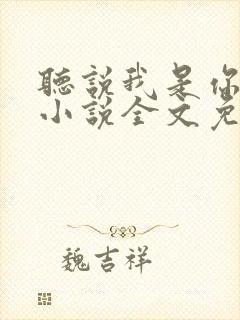 聽說我是你
小說全文免
魏吉祥